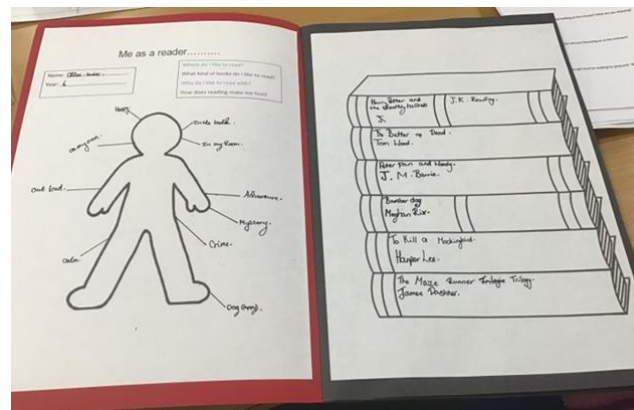 Me as a reader..........
Name:
Year: 6
Where do I like to read?
What kind of books do I like to read?
Who do I like to read with?
How does reading make me feel?
Happy
In the bath.
In my room.
on my own.
out loud.
Adventure.
Mystery.
Crime.
Calm.
Harry Potter and
the deathly hallows
J.
J.K. Rowling.
To Better of Dead.
Tom Wood.
Peter Pan and Wendy.
J. M. Barrie.
Bomber dog
Meghan Rix.
To Kill a Mockingbird.
Harper Lee.
The Maze Runner Trilogy.
James Dashner.